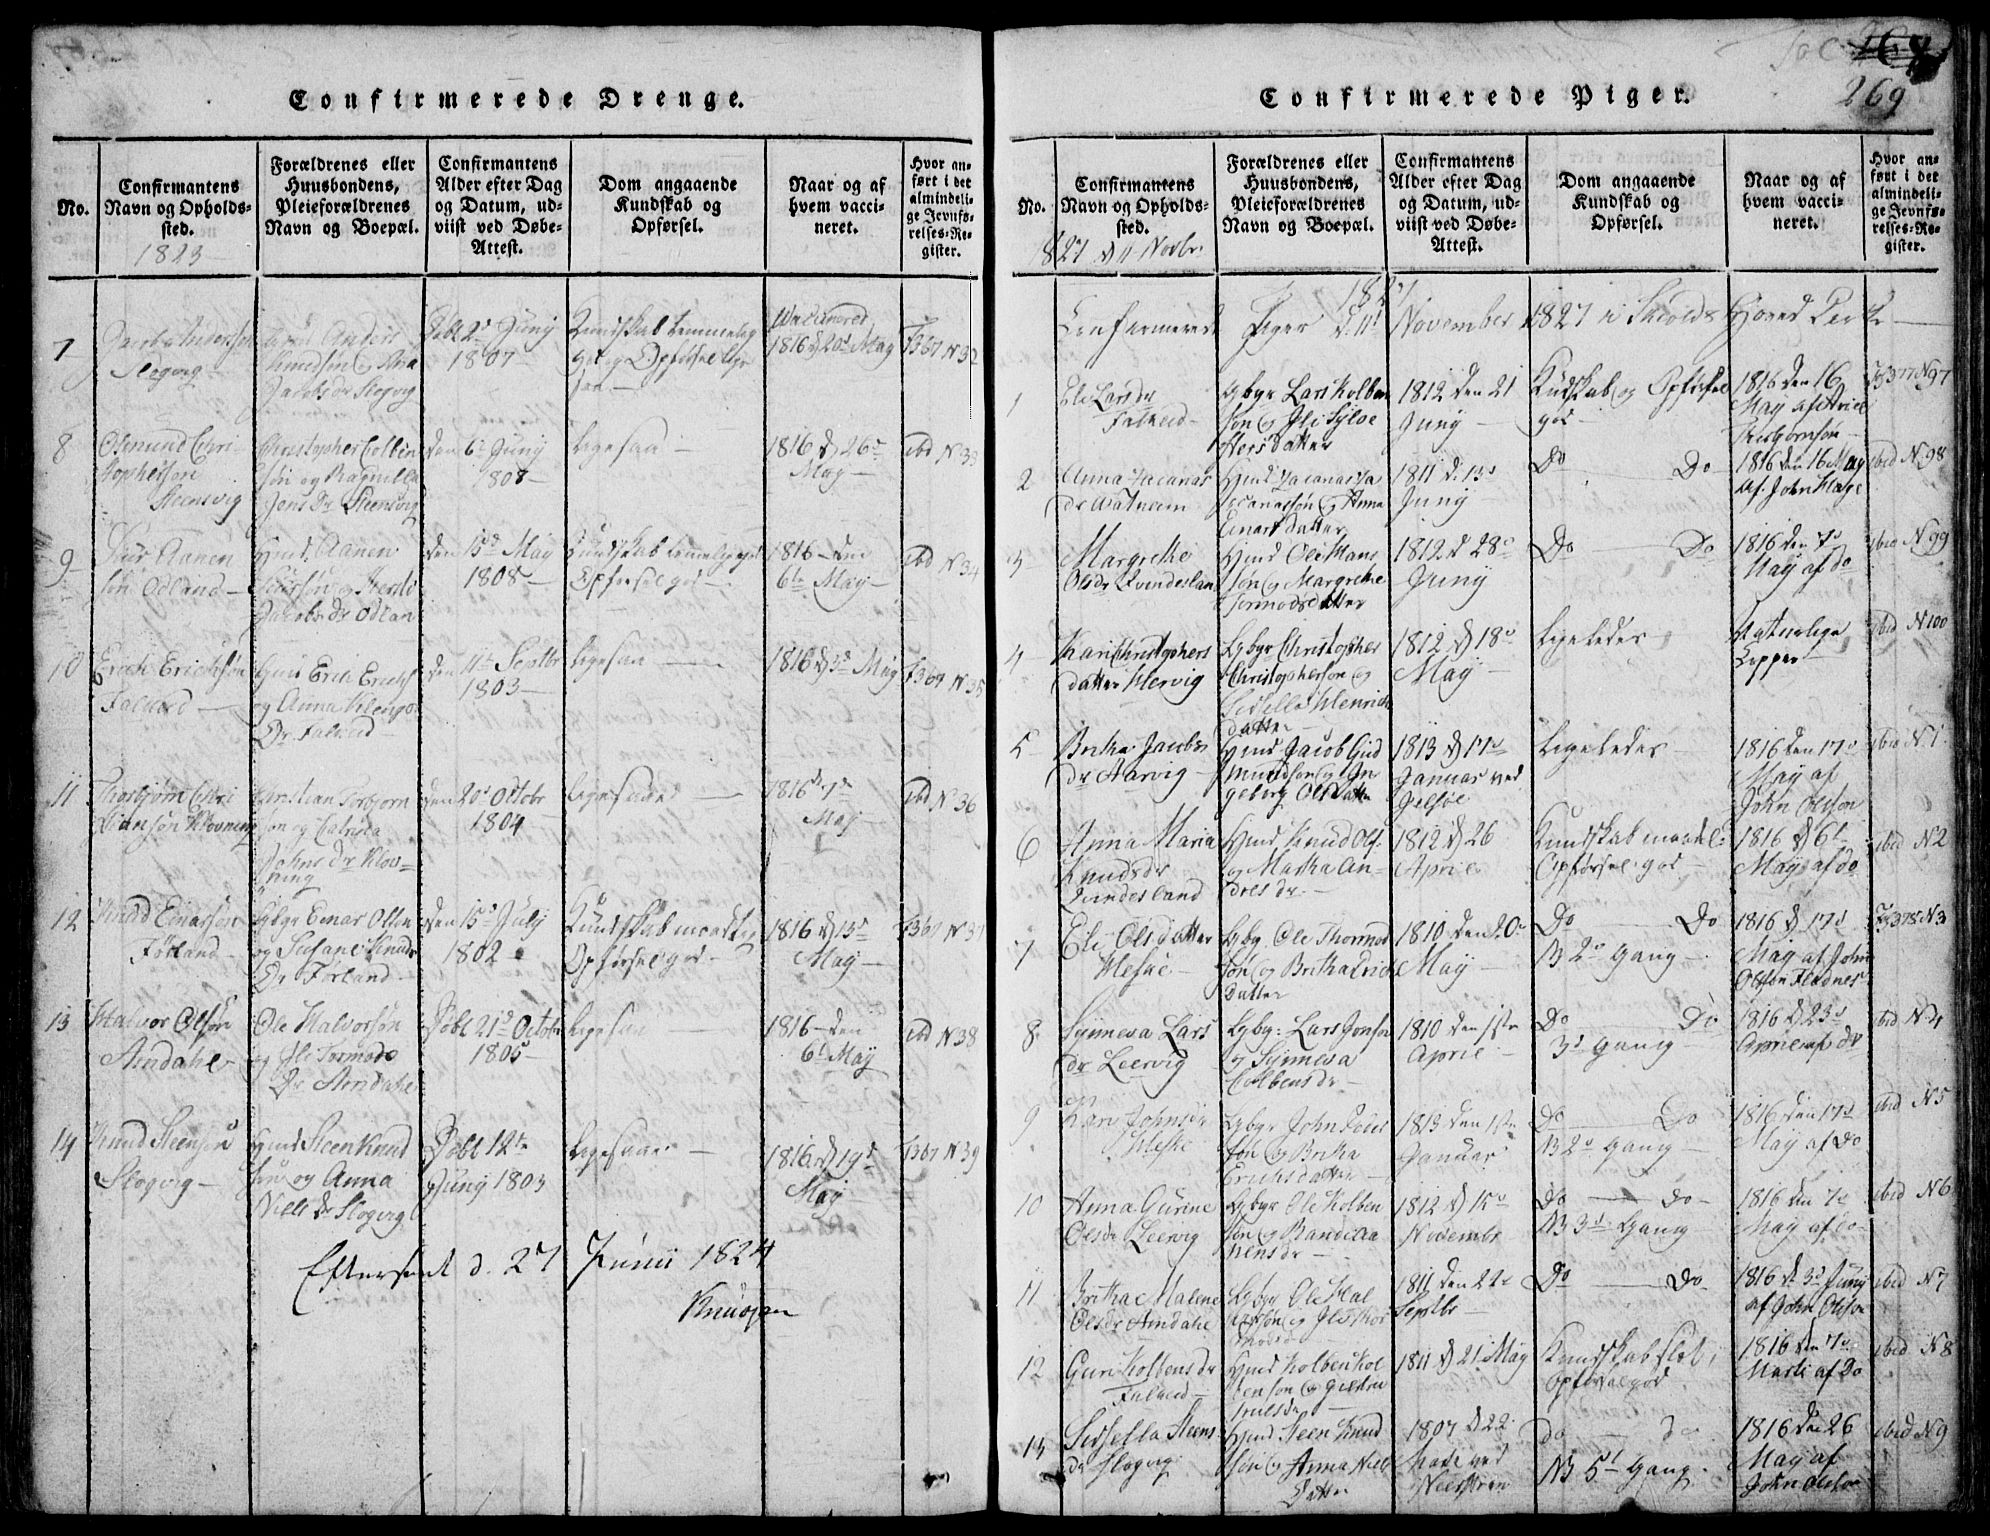 Confirmerede Drenge.
No.
Confirmantens
Navn og Opholds-
sted.
1823
Forældrenes eller
Huusbondens,
Pleieforældrenes
Navn og Boepæl.
Confirmantens
Alder efter Dag
og Datum, ud-
viist ved Døbe-
Attest.
Dom angaaende
Kundskab og
Opførsel.
Naar og af
hvem vacci-
neret.
Hvor an-
ført i det
almindeli-
ge Jevnfø-
relses-Re-
gister.
7
Slogvig
Anders
Knudsøn og Ana
Jacobs dr Slogvig
Døbt 2d Juny
1807
Kundskab temmelig
god og Opførsel lige
saa
Vaccineret
1816 d 20d May
F367 N 32
8
Osmund Chri
stophersøn
Steensvig
Christopher Colbein
søn og Ragnilla
Jens Dr Steensvig
den 6te Juny
1808
ligesaa
1816 d 26de
May
ibd N 33
9
Aanen
søn Odland
Hmd: Aanen
Jacobs Dr Odlan
den 15d May
1808
Kundskab temelig god
Opførsel god
1816 den
6te May
ibd N 34
10
Erich Erichsøn
Falkeid
Hmd Erich Erichs
og Anna
Dr Falkeid
den 11te Septbr
1803
ligesaa
1816 d 3d May
F367 N 35
11
Thorbjørn Chri
stiansøn Klovning
Christian Torbjørn
søn og Catrina
Johns dr Klov-
ning
den 20d Octobr
1804
ligesaa
1816 d 7de
May
ibd N 36
12
Knud Einarsøn
Førland
Gbgr Einar Olsen
og Susane Knuds
Dr Førland
den 15d July
1802
Kundskab maadelig
Opførsel god
1816 d 13d
May
F367 N 37
13
Halvor Olsøn
Amdahl
Ole Halvorsøn
og Tormods
Dr Amdahl
Døbt 21d Octobr
1805
ligesaa
1816 den
6te May
ibd N 38
14
Knud Steensøn
Slogvig
Hmd Steen Knud
søn og Anna
Niels Dr Slogvig
Døbt 12te
Juny 1803
ligesaa
1816 d 19d
May
F367 N 39
Efterseet d. 27 Junii 1824
Knudsen
Confirmerede Piger.
269
No.
Confirmantens
Navn og Opholds-
sted.
1827 d 11 Novbr
Forældrenes eller
Huusbondens,
Pleieforældrenes
Navn og Boepæl.
Confirmantens
Alder efter Dag
og Datum, ud-
viist ved Døbe-
Attest.
Dom angaaende
Kundskab og
Opførsel.
Naar og af
hvem vacci-
neret.
Hvor an-
ført i det
almindeli-
ge Jevnfø-
relses-Re-
gister.
1827
Confirmerede Piger d. 11te November 1827 i Skiolds Hoved Kirke
1
Eli Lars dr
Falkeid
Gbgr Lars Kolben
søn og Eli Sylve
sters datter
1812 den 21
Juny
Kundskab og Opførsel
god
1816 den 16
May af Ariel
F377 N97
2
Anna Zacarias
dr Watneem
Hmd Zacarias Za
cariassøn og Anna
Einars datter
1811 d. 13d
Juny
Do Do
1816 den 16 May
af John
ibid N 98
3
Margrethe
Olsdr Qvindeslan
Hmd Ole Hans
søn og Margrethe
Tormodsdatter
1812 d 28d
Juny
Do Do
1816 den 7d
May af do
ibid N 99
4
Kari Christophers
datter Hervig
Gbgr Christopher
Christophersøn og
Sidsella Henrich
datter
1812 d 18d
May
Ligeledes
Naturlige
Kopper
ibid N 100
5
Britha Jacobs
dr Aarvig
Hmd Jacob Gud
mundsøn og In
geborg Olsdatter
1813 d 17d
Januar ved
Jelsøe
Ligeledes
1816 den 17d
May af
John Olsøn
ibid N 1
6
Anna Maria
Knudsdr
Qvindesland
Hmd Knud Ols.
og Martha An-
dreas dr.
1812 d 26
April
Kundskab maadel:
Opførsel god
1816 d 6te
May af do
ibid N 2
7
Eli Olsdatter
Gbg. Ole Thormod
søn og Britha Erich
datter
1810 den 20d
May
Do Do
NB 2d Gang
1816 d 17d
May af John
Olsøn Fladnes
F378 N 3
8
Synneva Lars
dr Leervig
Gbgr: Lars Jonsøn
og Synneva
Colbensdr
1810 den 1ste
April
Do Do
3d Gang
1816 d 23d
April af do
ibid N 4
9
Kari Johnsdr
Gbgr John Peder
søn og Britha
Erichsdatter
1813 den 1ste
Januar
Do Do
NB 2d Gang
1816 den 17d
May af do
ibid N 5
10
Anna Gurine
Olsdr Leervig
Gbgr Ole Kolben
søn og Randi Aa
nensdr
1812 d 15d
Novembr
Do do
NB 3d Gang
1816 den 7d
May af do
ibid N 6
11
Britha Malene
Olsdr Amdahl
Gbgr Ole Hal
vorsøn og
1811 den 22d
Septbr
Do Do
1816 d 3d Juny
af John Olsøn
ibid N 7
12
Guri Kolbensdr
Falkeid
Hmd Kolben Kol
bensøn og
1811 d 21 May
Kundskab slet,
Opførsel god
1816 den 7d
Marti af Do
ibid N 8
13
Sidsella Steens
dr Slogvig
Hmd Steen Knud
søn og Anna Niels
Datter
1807 d 22
ved
do do
NB 5te Gang
1816 den 26
May af
John Olsøn
ibid N 9